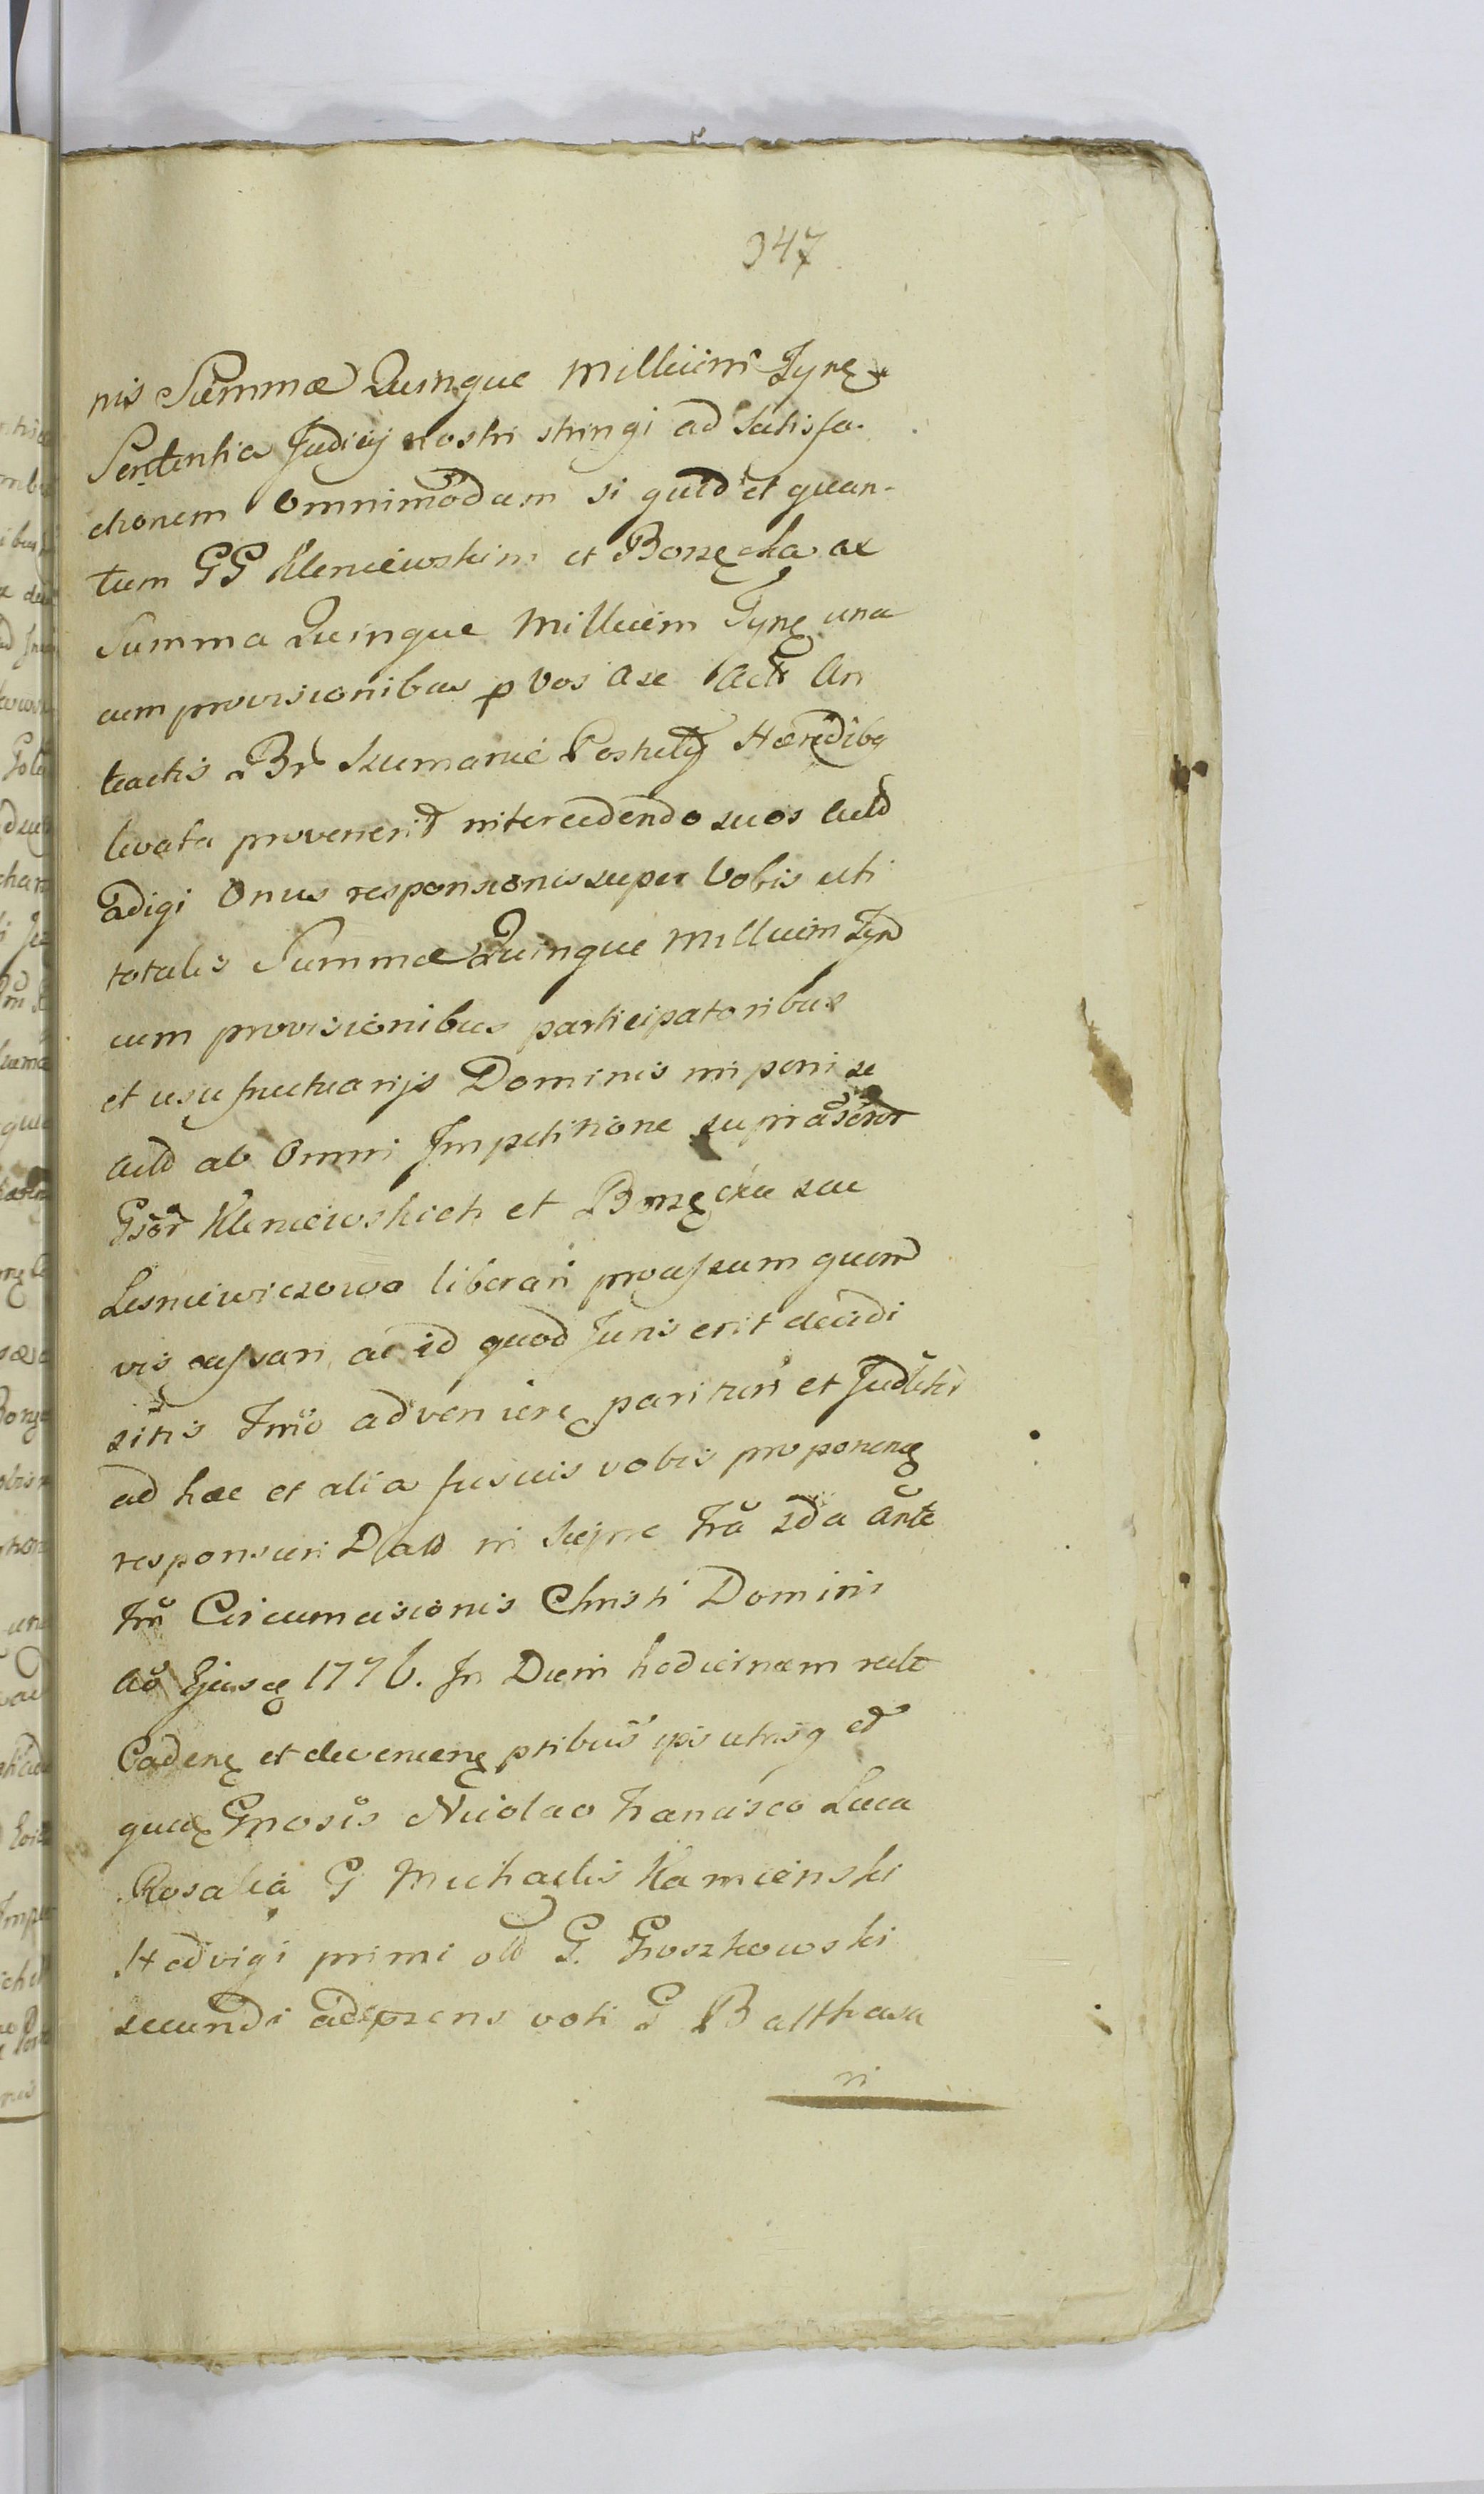 347
nis Summæ Quinque Millium Tynę
Sententia Judicij nostri stringi ad Satisfa-
ctionem omnimodam si quid et quan-
tum GG Kleniewskim et Borzęcka ex
Summa Quinque Millium Tynę una
cum provisionibus p Vos a se
teactis Szumanie Hæredibq
levata provenerit intercedendo suos
adigi Onus responsionis super Vobis uti
totalis Summæ Quinque Millium Tyn
cum provisionibus participatoribus
et usufructuarijs Dominis imponi se
ab Omni Impetitione
Gsor Kleniewskich et Borzęcka sue
Lesniewiczowa liberari processum quem
vis cassari ac id quod Juris erit decidi
sitis Trmo advenienę parituri et Judlitr
ad hæc et alia fusius vobis proponenę
responsuri Datt in ante
Circumcisionis Christi Domini
Ao Ejusq 1776. In Diem hodiernam
Cadenę et devenienę ptibus ipis utrisq et
quidę Gnosis Nicolao Francisco Luca
Rosalia G Michaelis Kamienski
Hedvigi primi olt G. Groszkowski
secundi ad præns voti G Balthasa
ri